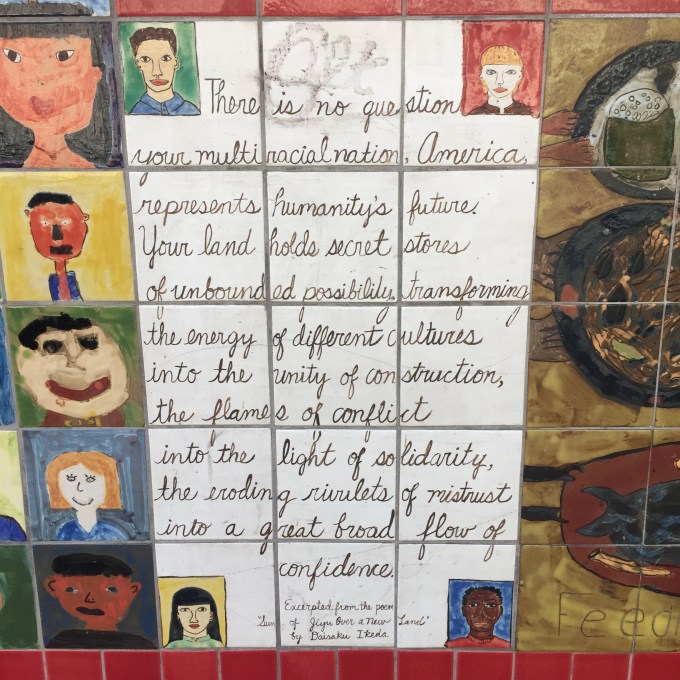 There is no question
your multiracial nation, America,
represents humanity's future.
Your land holds secret stores
of unbounded possibility, transforming
the energy of different cultures
into the unity of construction,
the flames of conflict
into the light of solidarity,
the eroding rivulets of mistrust
into a great broad flow of
confidence.
Excerpted from the poem
"Sun of Jiyu Over a New Land"
by Daisaku Ikeda
Feed